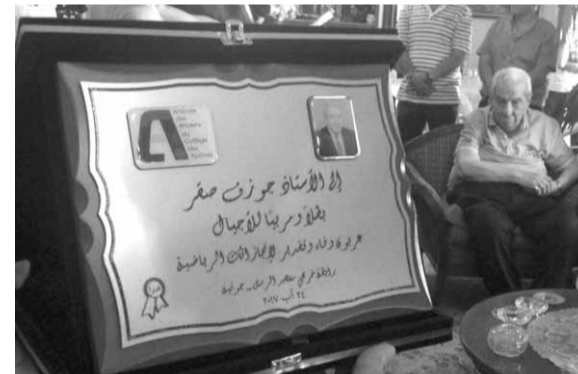 Amicale
des
Anciens
du
Collège
des
Apôtres
إلى الأستاذ جوزف صقر
بطلاً ومربياً للأجيال
عربون وفاء وتقدير لإنجازاتك الرياضية
رابطة خريجي معهد الرسل - جونية
٢٤ آب ٢٠١٧